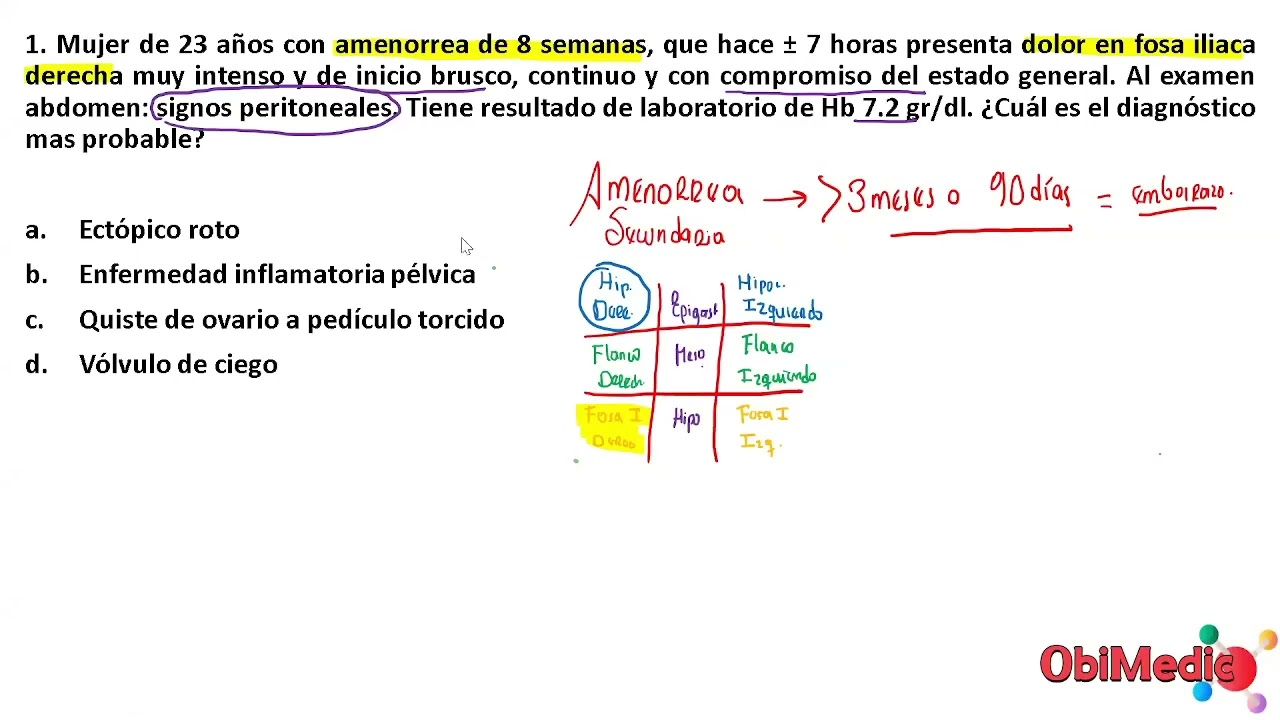 1. Mujer de 23 años con amenorrea de 8 semanas, que hace ± 7 horas presenta dolor en fosa iliaca
derecha muy intenso y de inicio brusco, continuo y con compromiso del estado general. Al examen
abdomen: signos peritoneales. Tiene resultado de laboratorio de Hb 7.2 gr/dl. ¿Cuál es el diagnóstico
mas probable?
Amenorrea → >3 meses o 90 días = embarazo.
Secundaria
a. Ectópico roto
b. Enfermedad inflamatoria pélvica
c. Quiste de ovario a pedículo torcido
d. Vólvulo de ciego
Hip. Epigast Hipoc.
Derec. Izquierdo
Flanco Meso Flanco
Derech Izquierdo
Fosa I Hipo Fosa I
Izq.
ObiMedic